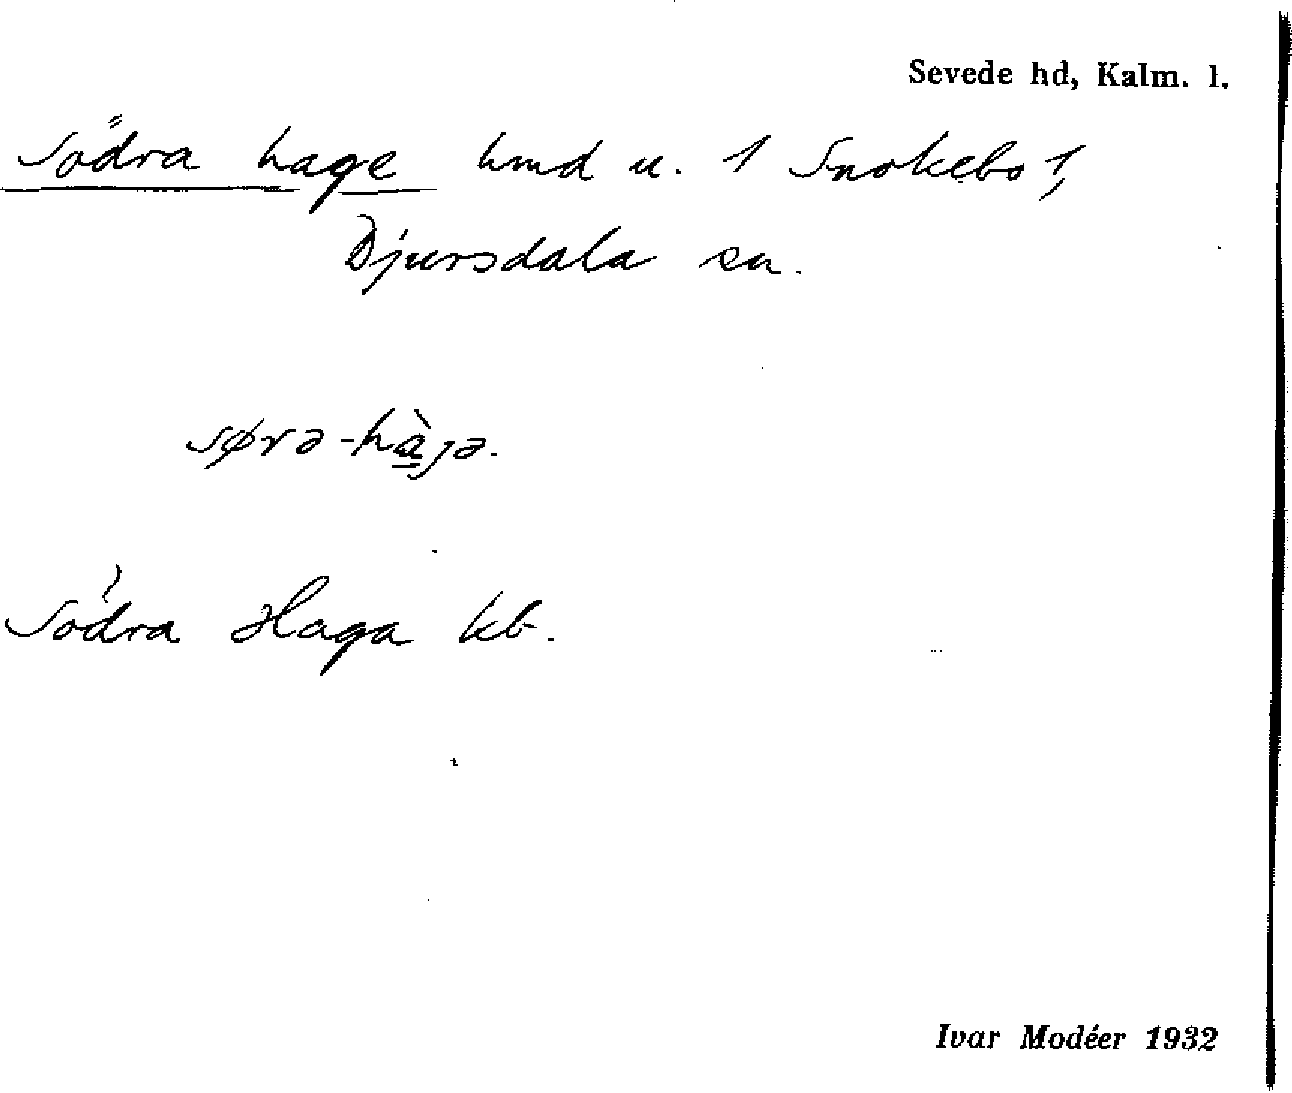 Sevede hd, Kalm. l.
Södra hage hmd u. 1 Snokebo 1,
Djursdala sn.
sørə-hàjə.
Södra Haga kb.
Ivar Modéer 1932